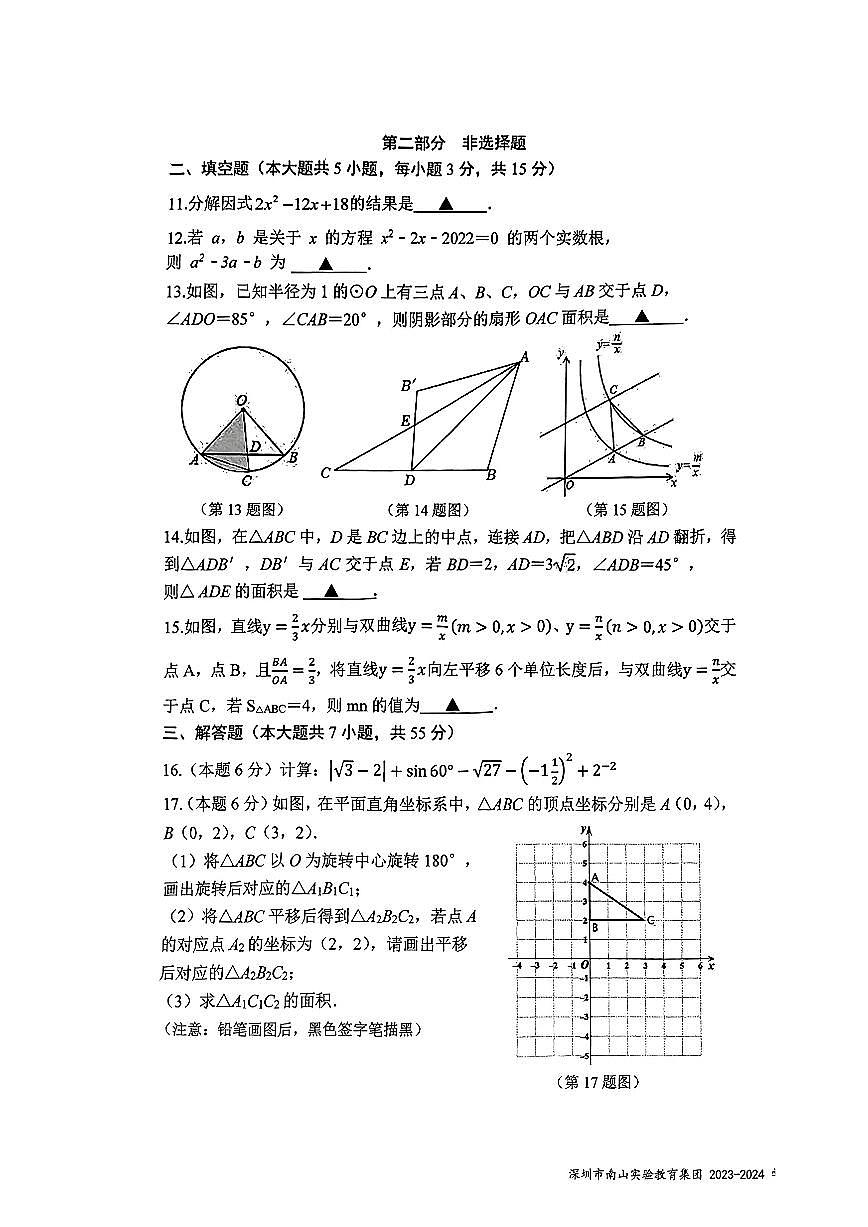 第二部分 非选择题
二、填空题（本大题共 5 小题，每小题 3 分，共 15 分）
11.分解因式2x² −12x+18的结果是 ▲ .
12.若 a，b 是关于 x 的方程 x²﹣2x﹣2022＝0 的两个实数根，
则 a²﹣3a﹣b 为 ▲ .
13.如图，已知半径为 1 的⊙O 上有三点 A、B、C，OC 与 AB 交于点 D，
∠ADO＝85°，∠CAB＝20°，则阴影部分的扇形 OAC 面积是 ▲ .
O
A
D
B
C
A
B′
E
C
D
B
y
y=n/x
C
B
A
y=m/x
O
x
（第 13 题图）
（第 14 题图）
（第 15 题图）
14.如图，在△ABC 中，D 是 BC 边上的中点，连接 AD，把△ABD 沿 AD 翻折，得
到△ADB′，DB′与 AC 交于点 E，若 BD＝2，AD＝3√2，∠ADB＝45°，
则△ADE 的面积是 ▲ .
15.如图，直线y = 2/3 x分别与双曲线y = m/x (m > 0, x > 0)、y = n/x (n > 0, x > 0)交于
点 A，点 B，且 BA/OA = 2/3，将直线y = 2/3 x向左平移 6 个单位长度后，与双曲线y = n/x交
于点 C，若 S△ABC＝4，则 mn 的值为 ▲ .
三、解答题（本大题共 7 小题，共 55 分）
16.（本题 6 分）计算：|√3 − 2| + sin 60° − √27 − (−1 1/2)² + 2⁻²
17.（本题 6 分）如图，在平面直角坐标系中，△ABC 的顶点坐标分别是 A（0，4），
B（0，2），C（3，2）.
（1）将△ABC 以 O 为旋转中心旋转 180°，
画出旋转后对应的△A₁B₁C₁；
（2）将△ABC 平移后得到△A₂B₂C₂，若点 A
的对应点 A₂ 的坐标为（2，2），请画出平移
后对应的△A₂B₂C₂；
（3）求△A₁C₁C₂ 的面积.
（注意：铅笔画图后，黑色签字笔描黑）
y
6
5
4
A
3
2
B
C
1
-4 -3 -2 -1 O 1 2 3 4 5 6 x
-1
-2
-3
-4
-5
（第 17 题图）
深圳市南山实验教育集团 2023-2024